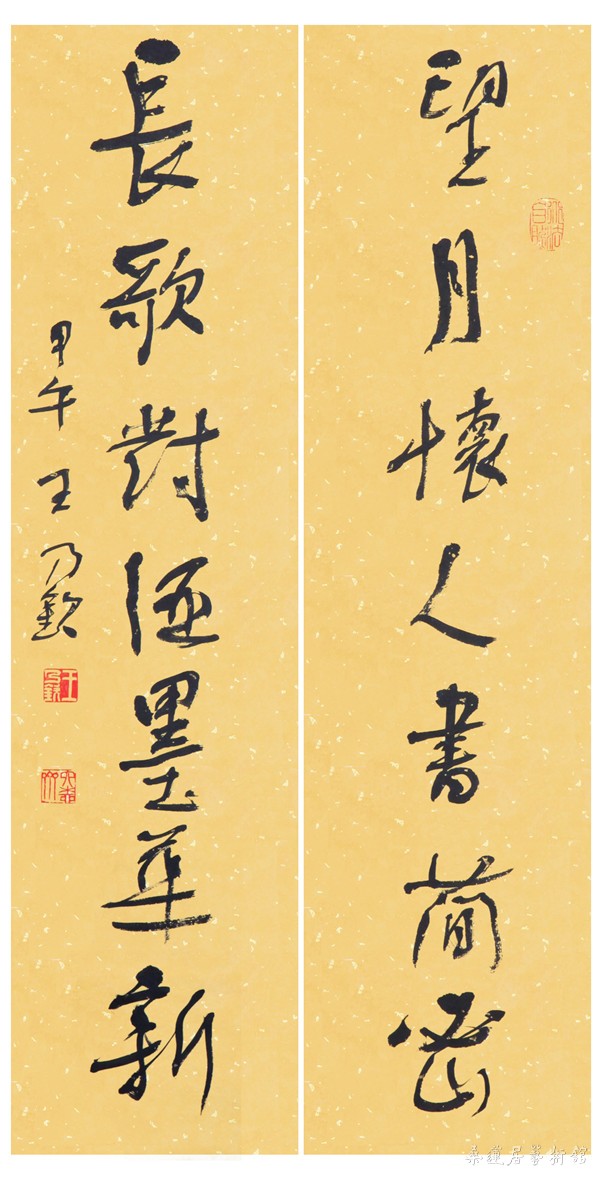 望月懷人書簡密
長歌對酒墨華新
甲午王乃欽
桑蓮居藝術館